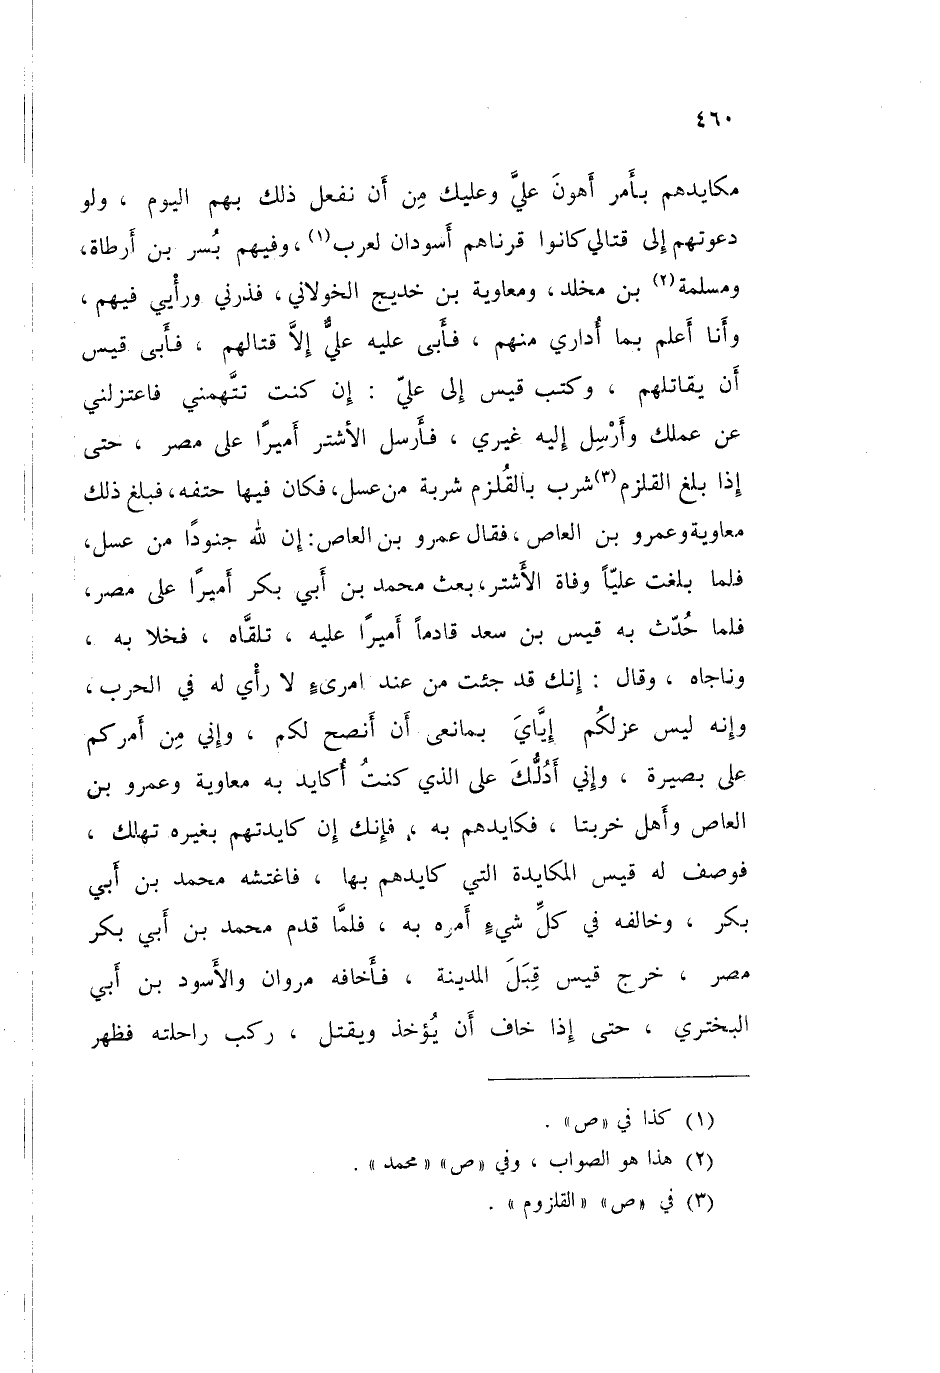 ٤٦٠
مكايدهم بأَمر أَهونَ عليَّ وعليك مِن أَن نفعل ذلك بهم اليوم ، ولو
دعوتهم إلى قتالي كانوا قرناهم أَسودان لعرب(١)، وفيهم بُسر بن أَرطاة،
ومسلمة(٢) بن مخلد، ومعاوية بن خديج الخولاني، فذرني ورأْيي فيهم ،
وأَنا أَعلم بما أُداري منهم ، فأَبى عليه عليٌّ إلاَّ قتالهم ، فأَبى قيس
أَن يقاتلهم ، وكتب قيس إلى عليّ : إن كنت تتَّهمني فاعتزلني
عن عملك وأَرْسِل إليه غيري ، فأَرسل الأَشتر أَميرًا على مصر ، حتى
إذا بلغ القلزم(٣) شرب بالقُلزم شربة من عسل، فكان فيها حتفه، فبلغ ذلك
معاوية وعمرو بن العاص ، فقال عمرو بن العاص: إن لله جنودًا من عسل،
فلما بلغت عليّاً وفاة الأَشتر، بعث محمد بن أَبي بكر أَميرًا على مصر،
فلما حُدّث به قيس بن سعد قادماً أَميرًا عليه ، تلقَّاه ، فخلا به ،
وناجاه ، وقال : إنك قد جئت من عند امرىءٍ لا رأْي له في الحرب،
وإنه ليس عزلكُم إيَّايَ بمانعى أَن أَنصح لكم ، وإني مِن أَمركم
على بصيرة ، وإني أَدُلُّكَ على الذي كنتُ أُكايد به معاوية وعمرو بن
العاص وأَهل خربتا ، فكايدهم به ، فإنك إن كايدتهم بغيره تهلك ،
فوصف له قيس المكايدة التي كايدهم بها ، فاغتشه محمد بن أَبي
بكر ، وخالفه في كلِّ شيءٍ أَمره به ، فلمَّا قدم محمد بن أَبي بكر
مصر ، خرج قيس قِبَلَ المدينة ، فأَخافه مروان والأَسود بن أَبي
البختري ، حتى إذا خاف أَن يُؤخذ ويقتل ، ركب راحلته فظهر
(١) كذا في «ص» .
(٢) هذا هو الصواب ، وفي «ص» «محمد» .
(٣) في «ص» «القلزوم» .